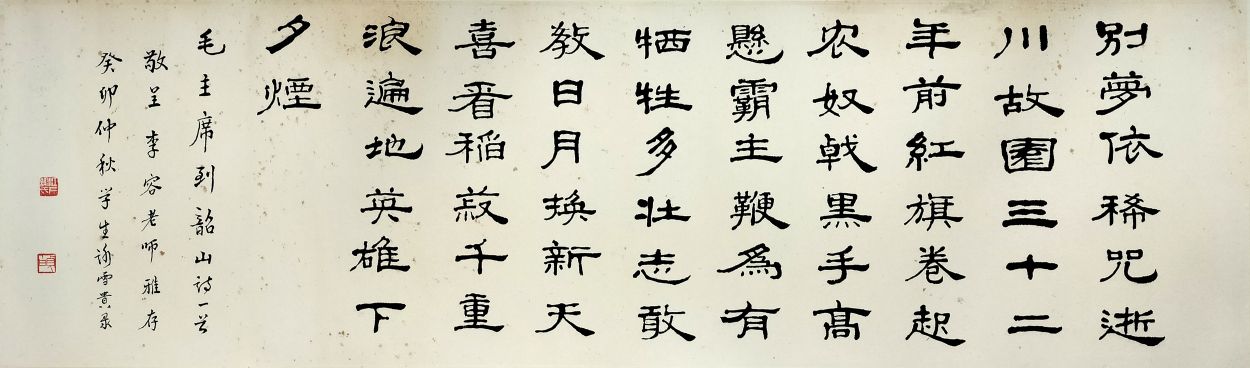 别夢依稀咒逝
川故園三十二
年前紅旗卷起
农奴戟黑手高
懸霸主鞭為有
牺牲多壮志敢
教日月换新天
喜看稻菽千重
浪遍地英雄下
夕煙
毛主席到韶山诗一首
敬呈 李容老师雅存
癸卯仲秋学生雪贵录